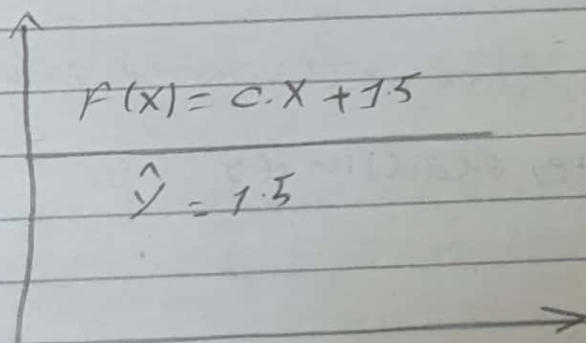 F(X) = 0.X + 1.5
ŷ = 1.5